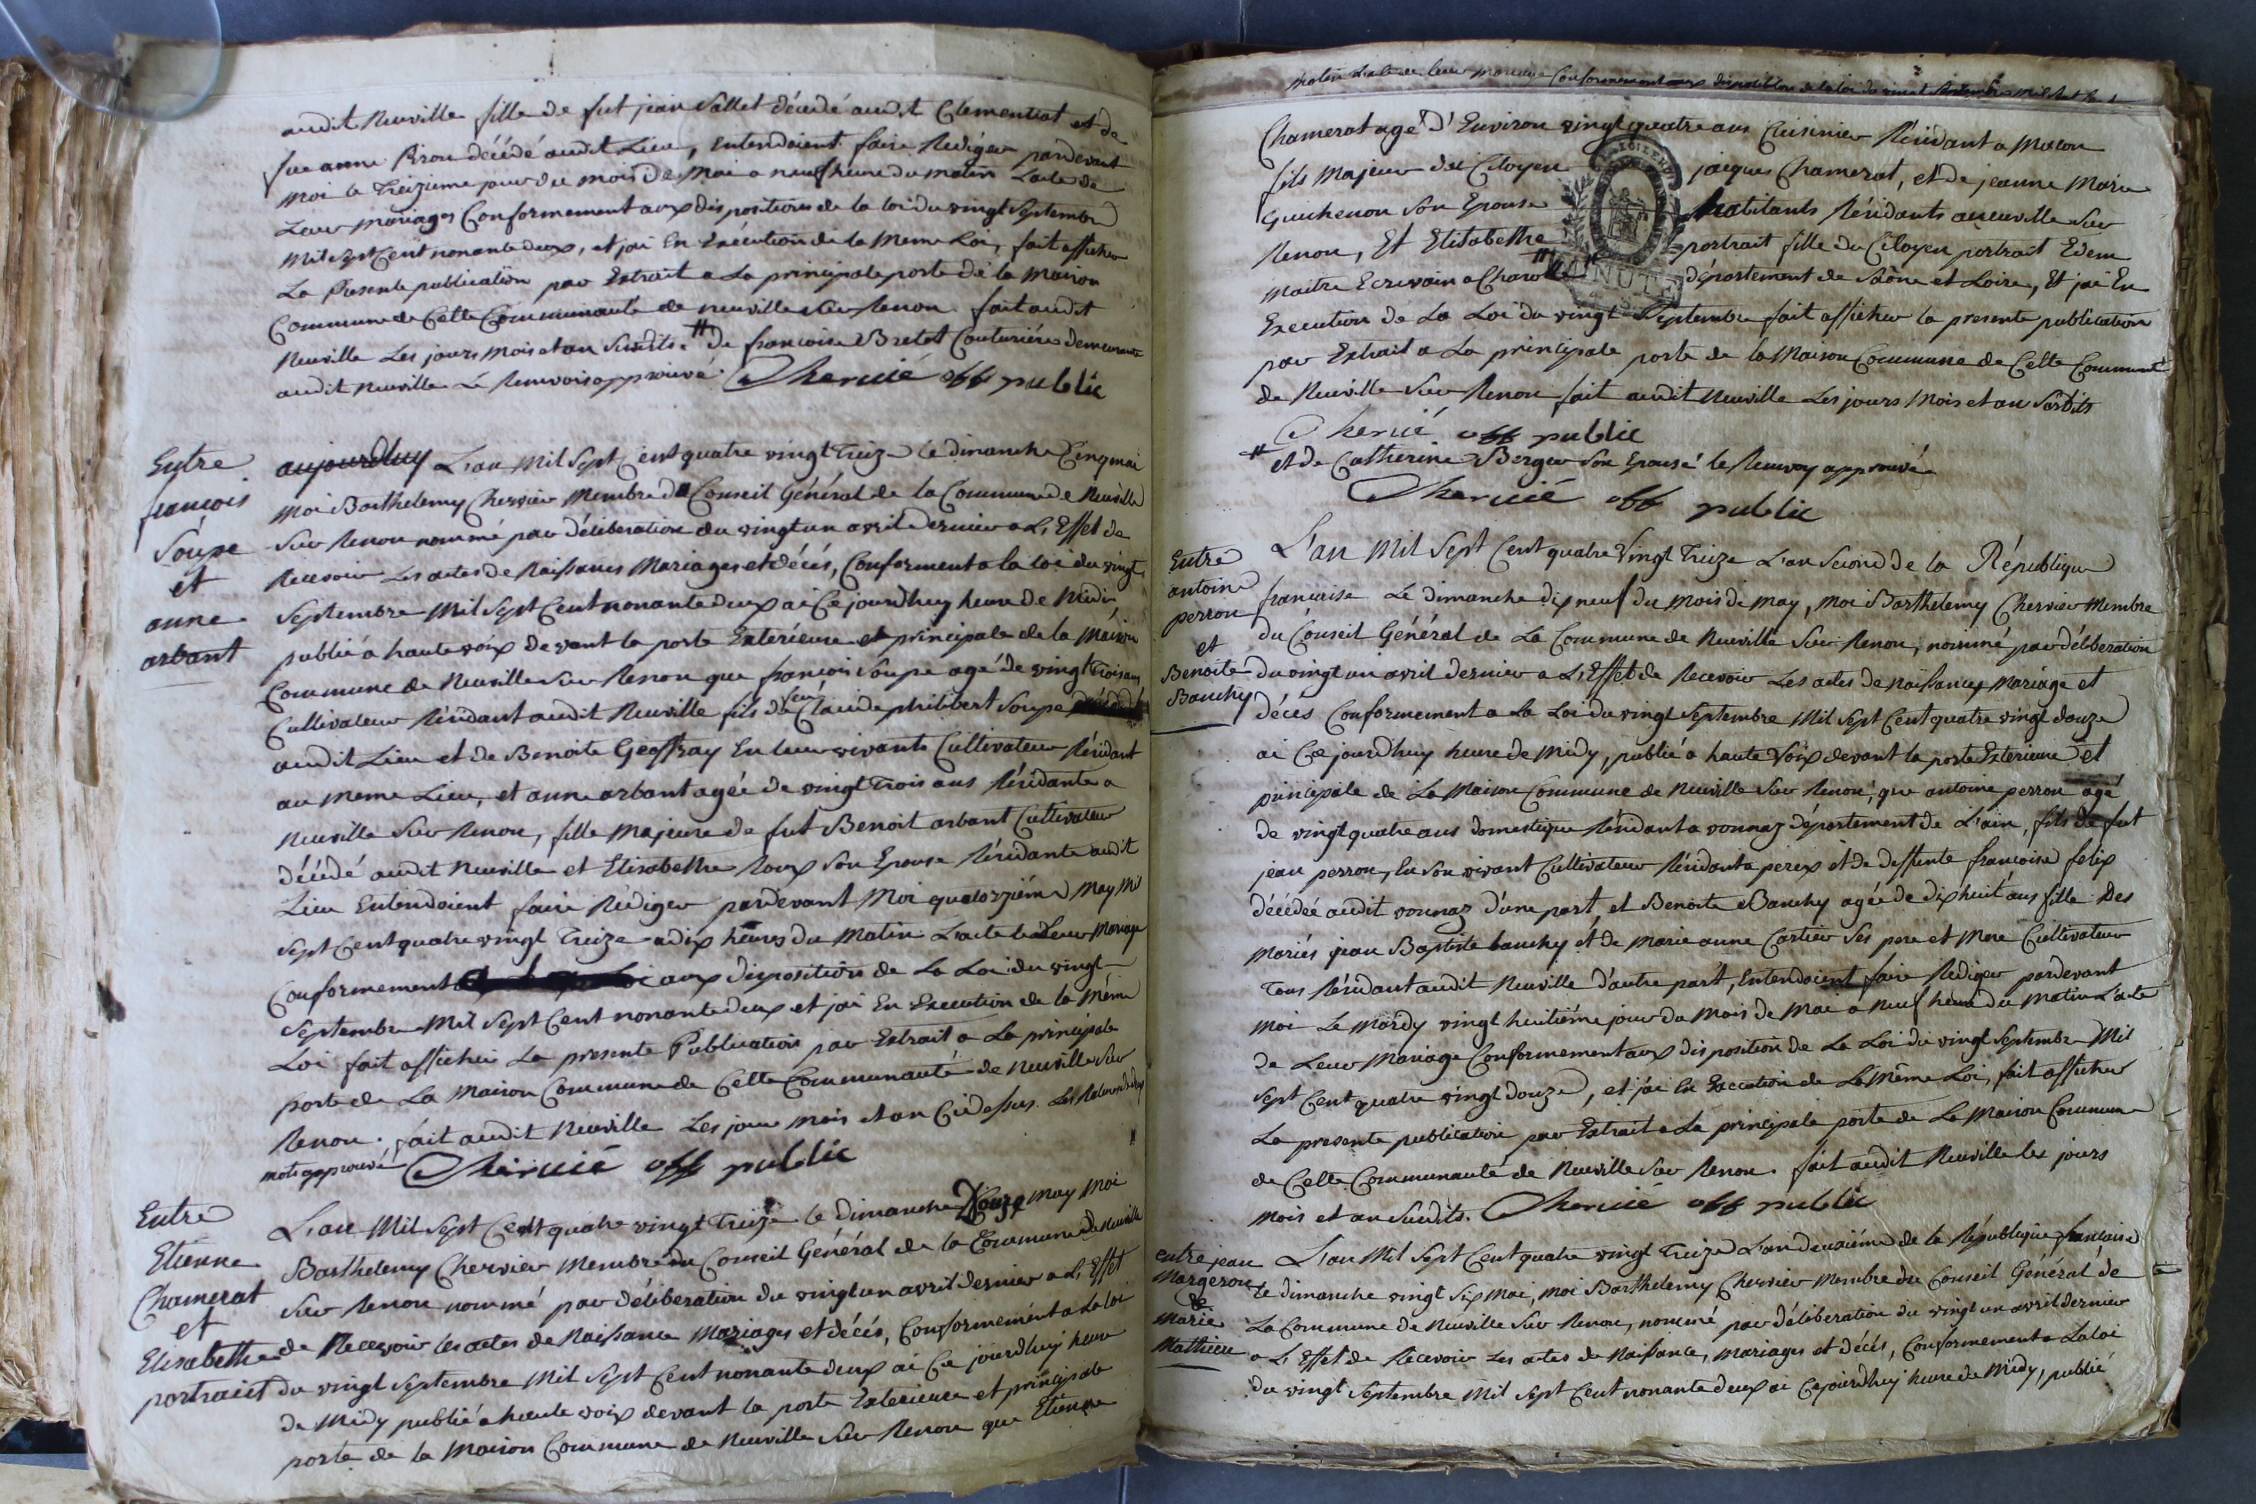 audit Neuville fille de fut jean Sallet décédé audit Clementiat et de
fue anne Piron décédé audit Lieu, entendoient faire Rédiger pardevant
moi le Treizieme jour du mois de Mai a neuf heure du matin L'acte de
Leur mariages Conformement aux dispositions de la loi du vingt Septembre
Mil Sept Cent nonante deux, et jai En Exécution de la Meme Loi, fait afficher
La Presente publication par Extrait a La principale porte de la Maison
Commune de Cette Communauté de neuville Sur Renon fait audit
Neuville Les jours Mois et an Susdits. # de francoise Bretet Couturiére demeurante
audit Neuville Le Renvois approuvé. Cherviè off public
Entre
francois
Soupe
et
anne
arbant
aujourdhuy L'an Mil Sept Cent quatre vingt Treize le dimanche Cinq mai
moi Barthelemy Chervier Membre du Conseil Général de la Commune de Neuville
Sur Renon nommé par déliberation du vingt un avril Dernier a L'Effet de
Recevoir Les actes de Naissances Mariages et décés, Conforment a la loi du vingt
Septembre Mil Sept Cent nonante deux ai Ce jourdhuy heure de Midi
publié a haute voix devant la porte Exterieure et principale de la Maison
Commune de Neuville Sur Renon que francois Soupe agé de vingt Trois ans
Cultivateur Résidant audit Neuville fils de feu Claude philibert Soupe
audit Lieu et de Benoite Geoffray En leur vivants Cultivateur Résidant
au meme Lieu, et anne arbant agée de vingt Trois ans Résidante a
Neuville Sur Renon, fille Majeure de fut Benoit arbant Cultivateur
décédé audit Neuville et Elisabethe Roux Son Epouse Résidante audit
Lieu Entendoient faire Rédiger pardevant Moi quatorziéme May Mil
Sept Cent quatre vingt Treize a dix heures du Matin L'acte de Leur Mariage
Conformement aux disposition de La Loi du vingt
Septembre Mil Sept Cent nonante deux et jai En Execution de la Méme
Loi fait afficher La presente Publication par Extrait a La principale
porte de La Maison Commune de Cette Communauté de Neuville Sur
Renon. fait audit Neuville Les jour mois et an Cidessus. Les
mots approuvé Cherviè off public
Entre
Etienne
Chamerat
et
Elisabethe
portrait
L'an Mil Sept Cent quatre vingt Treize le dimanche Douze May Moi
Barthelemy Chervier Membre du Conseil Général de la Commune de Neuville
Sur Renon nommé par déliberation du vingt un avril dernier a L'Effet
de Recevoir les actes de Naissance Mariages et décés, Conformement a La loi
du vingt Septembre Mil Sept Cent nonante deux ai Ce jourdhuy heure
de Midy publié a haute voix devant la porte Exterieure et principale
porte de la Maison Commune de Neuville Sur Renon que Etienne
Chamerat agé D'Environ vingt quatre ans Cuisinier Résidant a Macon
fils Majeur du Citoyen jacques Chamerat, et de jeanne Marie
Guichenon Son Epouse habitants Résidants a neuville Sur
Renon, Et Elisabethe portrait fille du Citoyen portrait Edem
Maitre Ecrivain a Charolle # département de Saône et Loire, Et jai En
MINUTE
Execution de La Loi du vingt Septembre fait afficher la presente publication
par Extrait a La principale porte de la Maison Commune de Cette Communauté
de Neuville Sur Renon fait audit Neuville Les jours Mois et an Susdits
Cherviè off public
# et de Catherine Berger Son Epouse le Renvoy approuvé
Cherviè off public
Entre
antoine
perron
et
Benoite
Bauchy
L'an Mil Sept Cent quatre Vingt Treize L'an Second de la République
francaise Le dimanche dix neuf du Mois de may, Moi Barthelemy Chervier Membre
du Conseil Général de La Commune de Neuville Sur Renon, nommé par déliberation
du vingt un avril dernier a L'Effet de Recevoir Les actes de naissances Mariage et
décés Conformement a La Loi du vingt Septembre Mil Sept Cent quatre vingt douze
ai Ce jourdhuy heure de Midy, publié a haute Voix devant la porte Exterieure et
principale de La Maison Commune de Neuville Sur Renon, que antoine perron agé
de vingt quatre ans domestique Résidant a vonnaz département de L'ain, fils de fut
jean perron, En Son vivant Cultivateur Résidant a perex et de deffunte francoise felix
décédée audit vonnaz d'une part, et Benoite Bauchy agée de dix huit ans fille Des
Mariés jean Baptiste bauchy et de Marie anne Cartier Ses pere et Mere Cultivateur
Tous Résidant audit Neuville d'autre part, Entendoient faire Rédiger pardevant
Moi Le Mardy vingt huitiéme jour du Mois de Mai a Neuf heure du Matin L'acte
de Leur Mariage Conformement aux disposition de La Loi du vingt Septembre Mil
Sept Cent quatre vingt Douze, et j'ai En Execution de La Même Loi, fait afficher
La presente publication par Extrait a La principale porte de La Maison Commune
de Cette Communauté de Neuville Sur Renon. fait audit Neuville les jours
Mois et an Susdits. Cherviè off public
entre jean
Margeron
&
Marie
Mathieu
L'an Mil Sept Cent quatre vingt Treize L'an deuxiéme de la République francaise
le dimanche vingt Six Mai, moi Barthelemy Chervier Membre du Conseil Général de
La Commune de Neuville Sur Renon, nommé par déliberation du vingt un avril dernier
a L'Effet de Recevoir Les actes de Naissance, Mariages et décés, Conformement a La loi
du vingt Septembre Mil Sept Cent nonante deux ai Cejourdhuy heure de Midy, publié